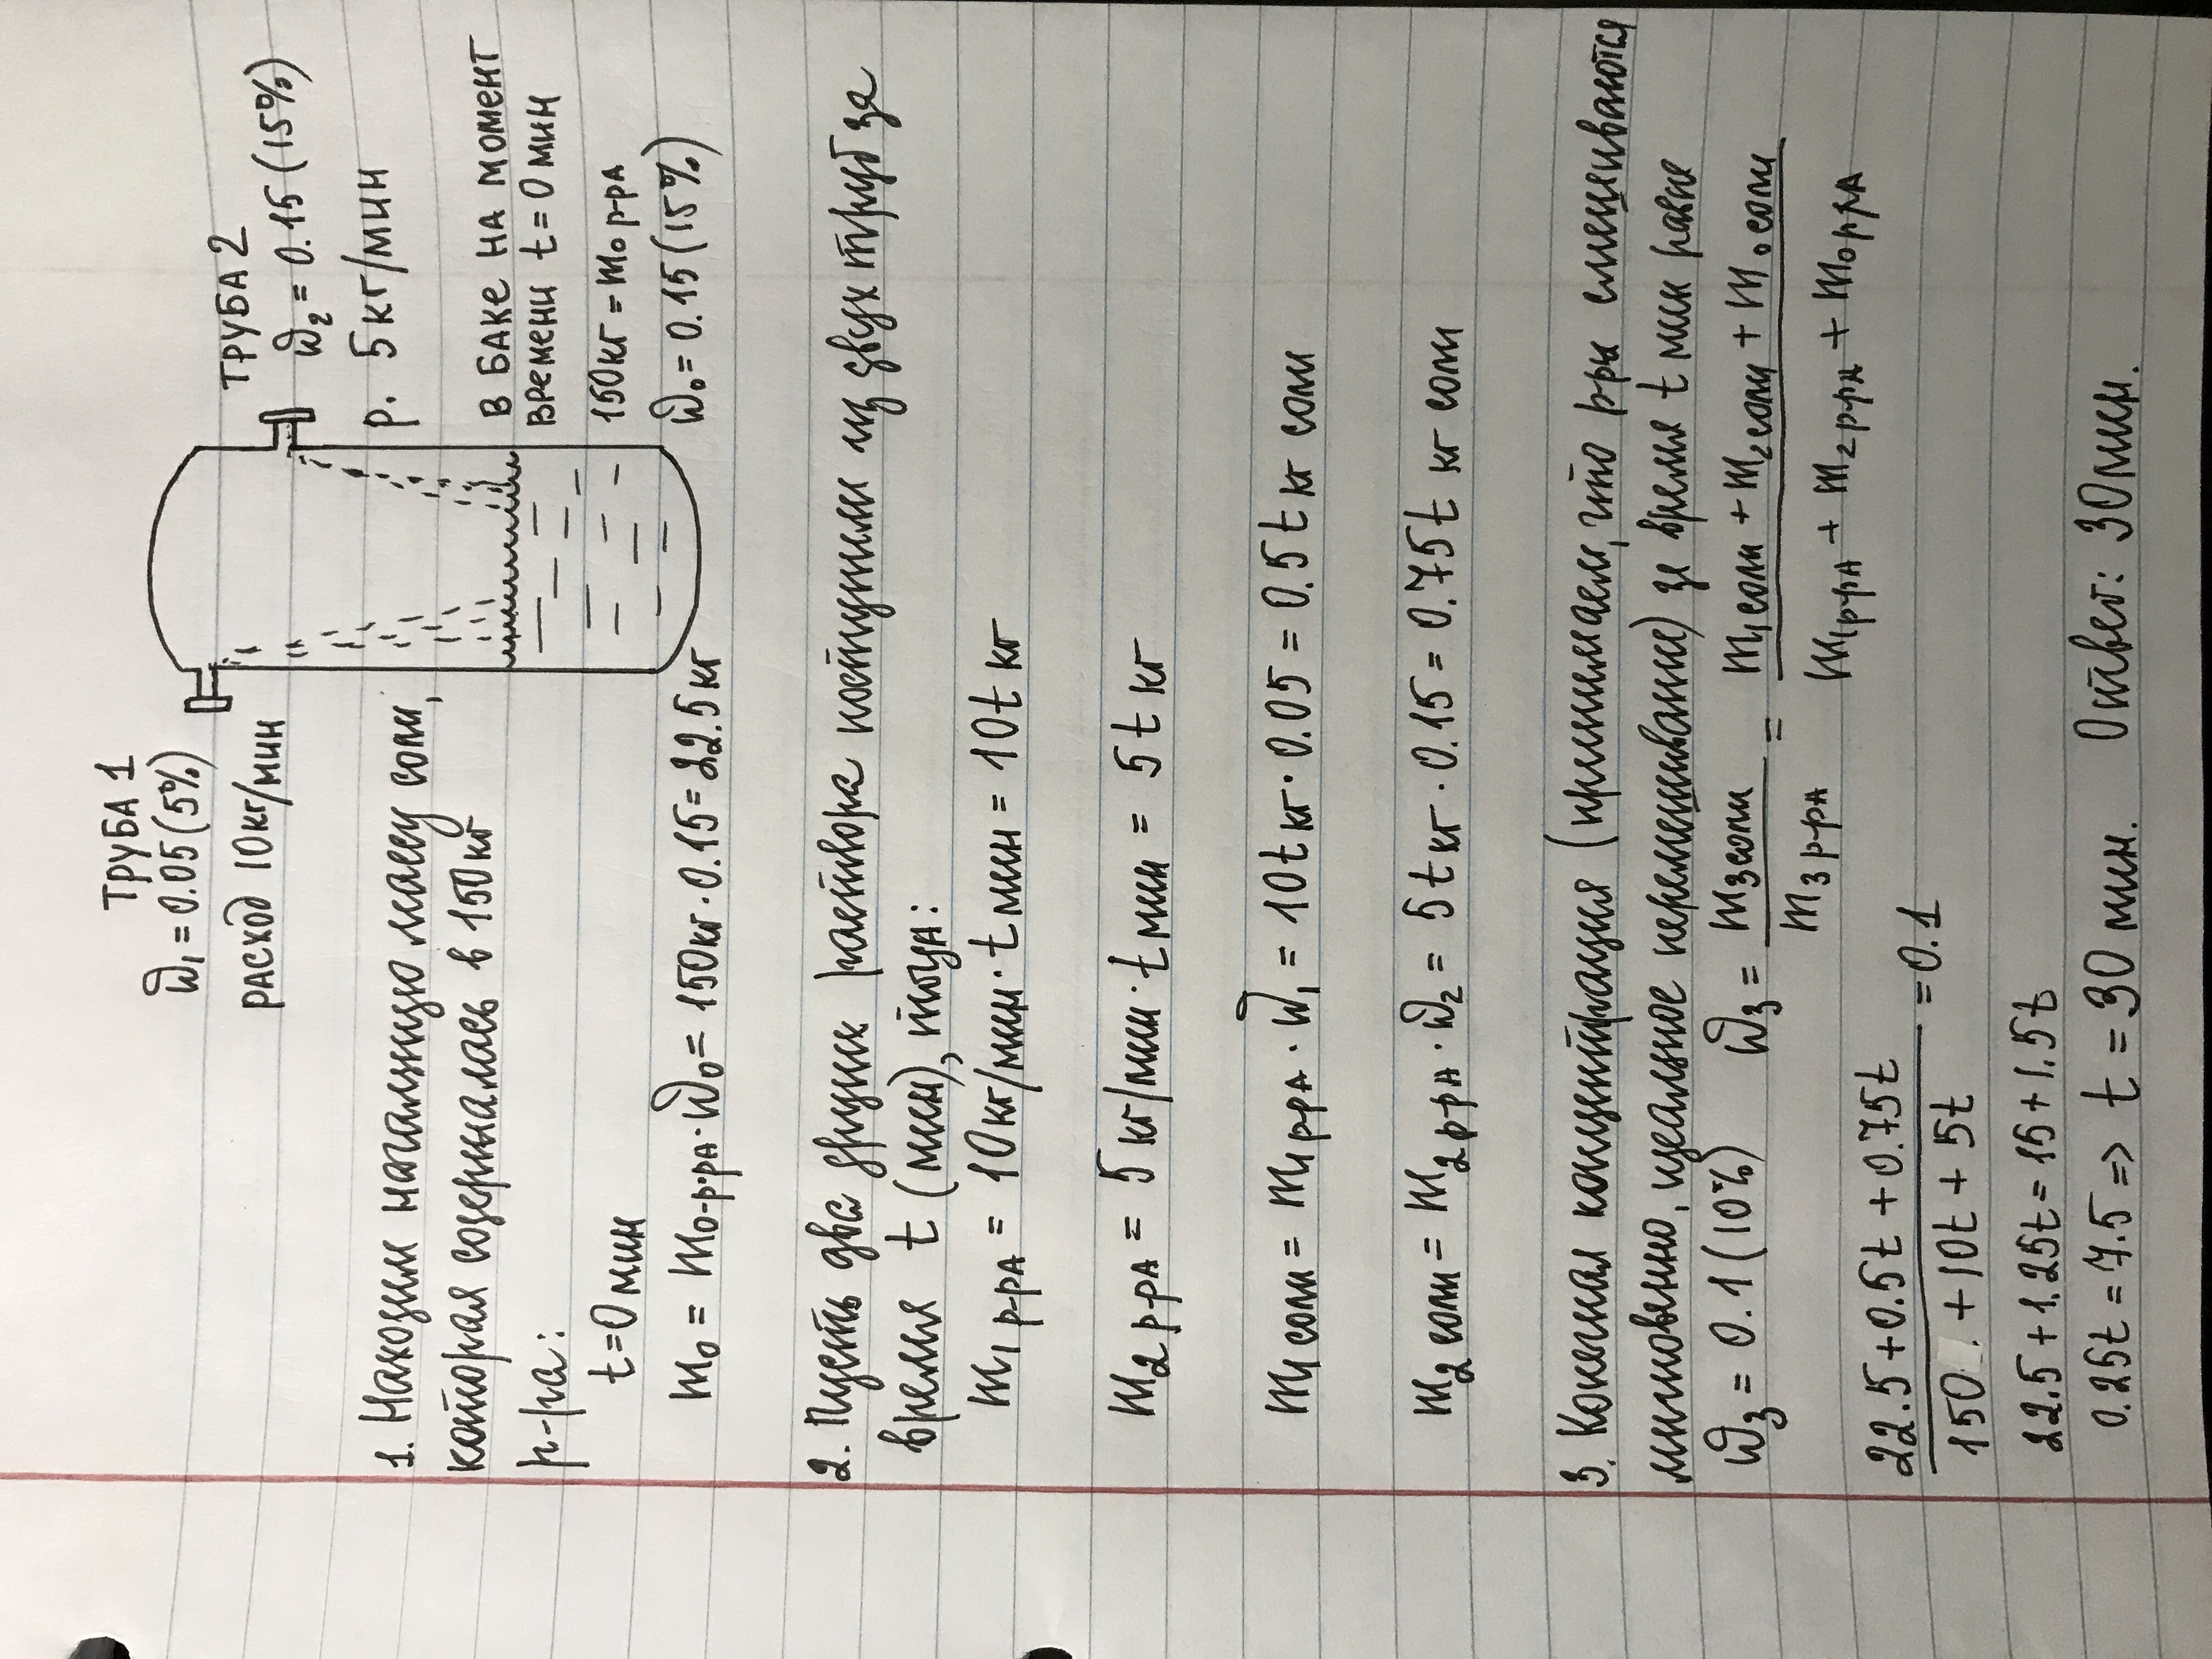 ТРУБА 1
ω₁ = 0.05 (5%)
РАСХОД 10 КГ/МИН
ТРУБА 2
ω₂ = 0.15 (15%)
Р. 5 КГ/МИН
В БАКЕ НА МОМЕНТ
ВРЕМЕНИ t = 0 МИН
150 КГ = m₀ р-рА
ω₀ = 0.15 (15%)
1. Находим начальную массу соли,
которая содержалась в 150 кг
р-ра:
t = 0 мин
m₀ = m₀ р-рА · ω₀ = 150 кг · 0.15 = 22.5 кг
2. Пусть два других раствора поступили из двух труб за
время t (мин), тогда:
m₁ р-рА = 10 кг/мин · t мин = 10t кг
m₂ р-рА = 5 кг/мин · t мин = 5t кг
m₁ соли = m₁ р-рА · ω₁ = 10t кг · 0.05 = 0.5t кг соли
m₂ соли = m₂ р-рА · ω₂ = 5t кг · 0.15 = 0.75t кг соли
3. Конечная концентрация (принимаем, что р-ры смешиваются
мгновенно, идеальное перемешивание) за время t мин равна
ω₃ = 0.1 (10%) ω₃ = m₃ соли / m₃ р-рА = (m₁ соли + m₂ соли + m₀ соли) / (m₁ р-рА + m₂ р-рА + m₀ р-рА)
(22.5 + 0.5t + 0.75t) / (150 + 10t + 5t) = 0.1
22.5 + 1.25t = 15 + 1.5t
0.25t = 7.5 => t = 30 мин. Ответ: 30 мин.